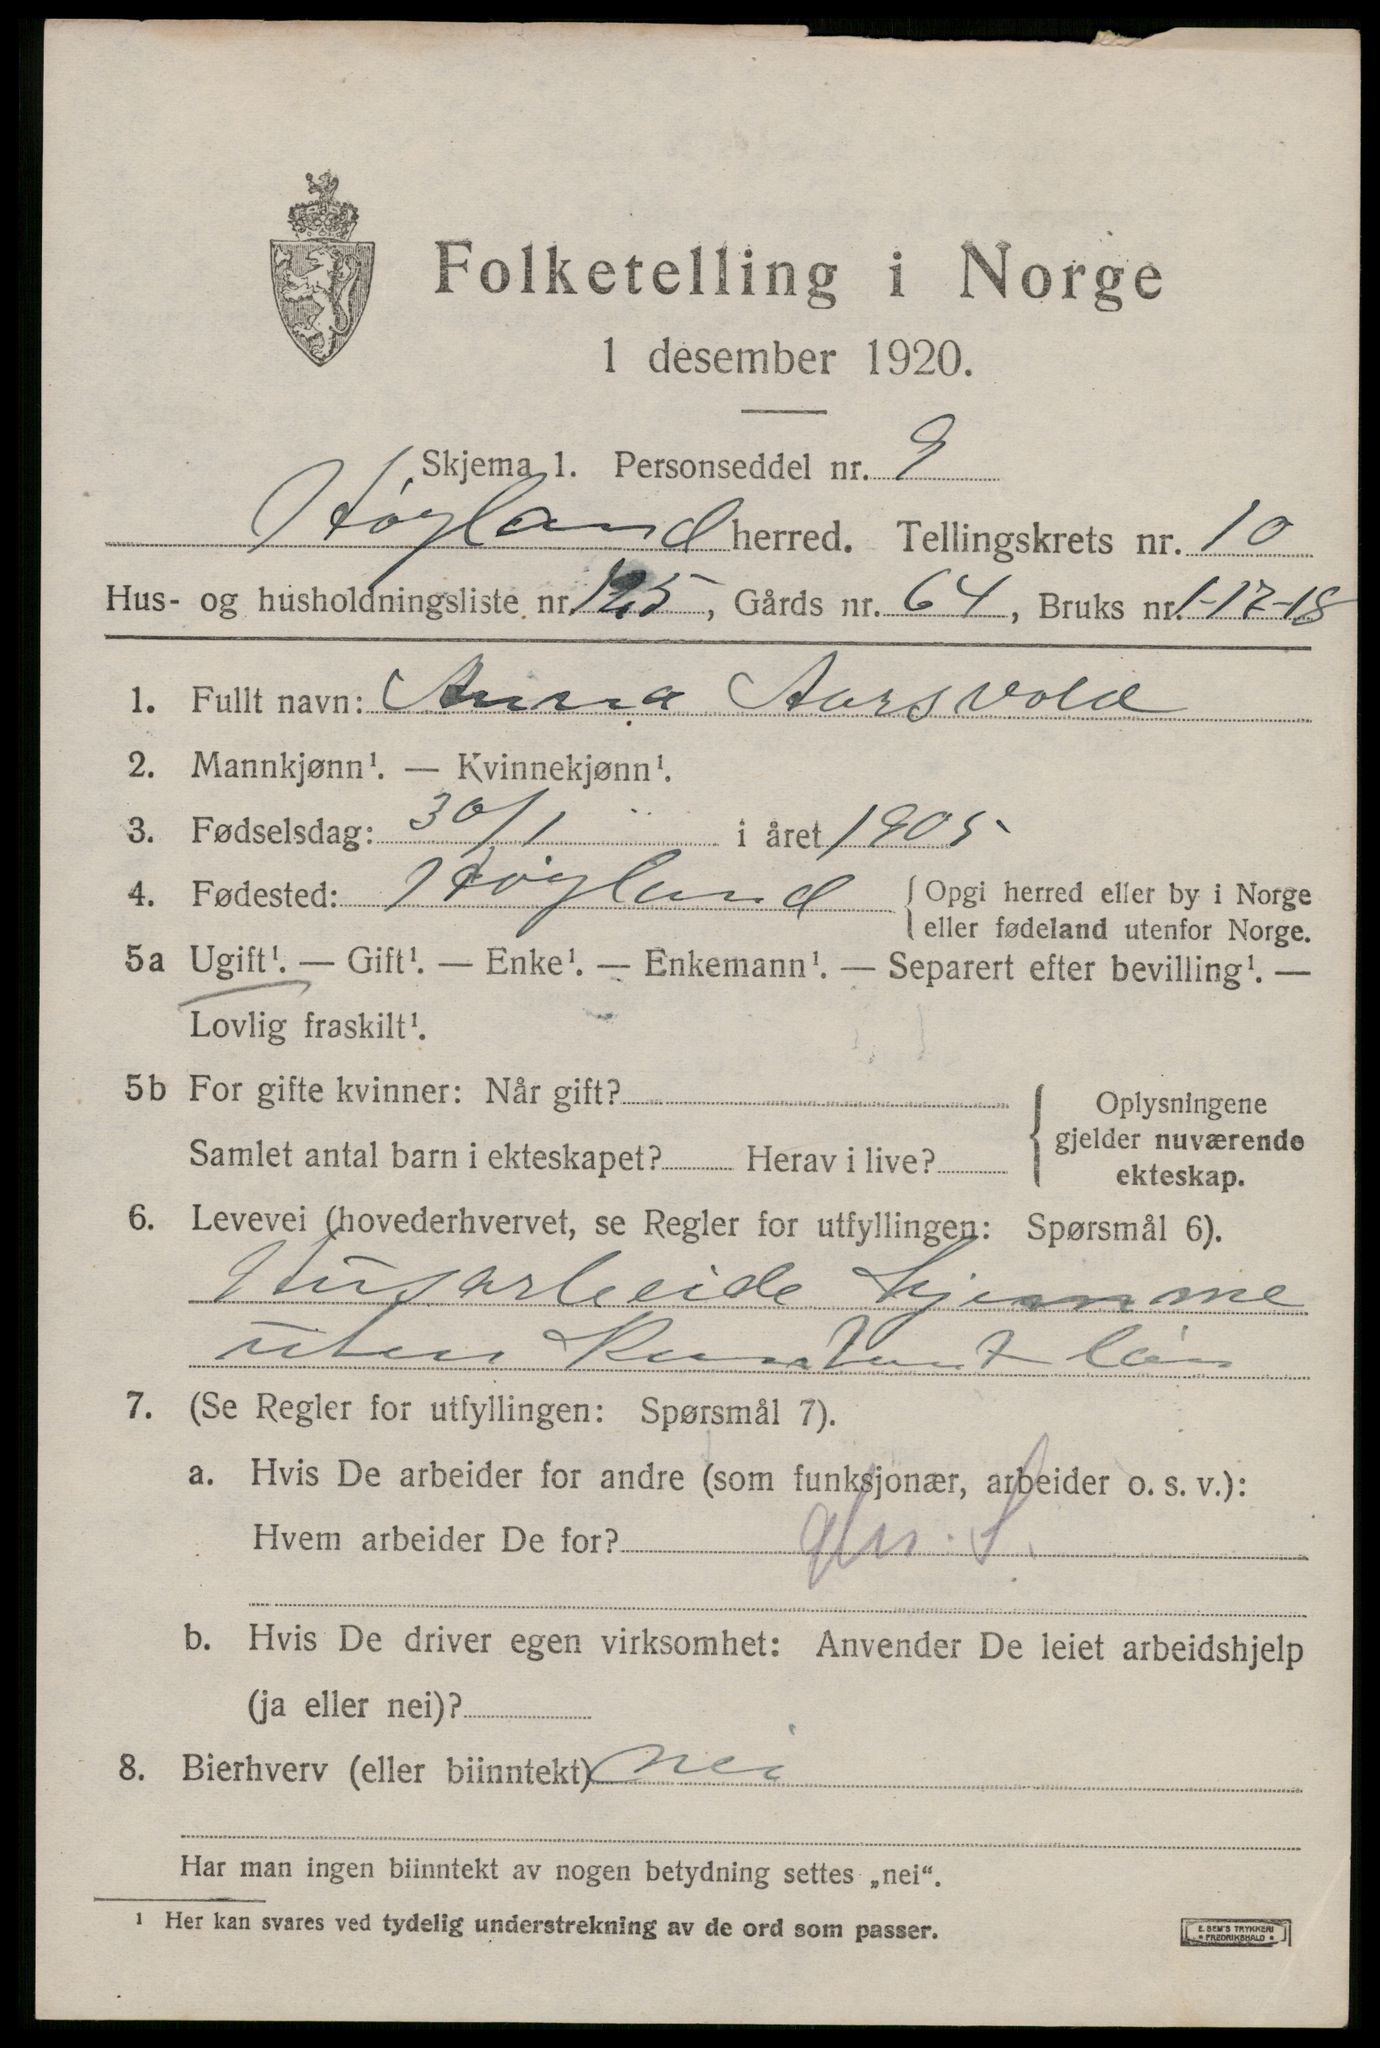 Folketelling i Norge
1 desember 1920.
Skjema 1. Personseddel nr. 9
Høyland herred. Tellingskrets nr. 10
Hus- og husholdningsliste nr. 125, Gårds nr. 64, Bruks nr. 1-17-18
1. Fullt navn: Anna Aarsvold
2. Mannkjønn¹. — Kvinnekjønn¹.
3. Fødselsdag: 30/1 i året 1905
4. Fødested: Høyland { Opgi herred eller by i Norge
eller fødeland utenfor Norge.
5a Ugift¹. — Gift¹. — Enke¹. — Enkemann¹. — Separert efter bevilling¹. —
Lovlig fraskilt¹.
5b For gifte kvinner: Når gift?
Samlet antal barn i ekteskapet? Herav i live?
Oplysningene
gjelder nuværende
ekteskap.
6. Levevei (hovederhvervet, se Regler for utfyllingen: Spørsmål 6).
Husarbeide hjemme
uten kontant løn
7. (Se Regler for utfyllingen: Spørsmål 7).
a. Hvis De arbeider for andre (som funksjonær, arbeider o. s. v.):
Hvem arbeider De for?
b. Hvis De driver egen virksomhet: Anvender De leiet arbeidshjelp
(ja eller nei)?
8. Bierhverv (eller biinntekt) nei
Har man ingen biinntekt av nogen betydning settes „nei“.
¹ Her kan svares ved tydelig understrekning av de ord som passer.
E. SEM'S TRYKKERI
• FREDRIKSHALD •